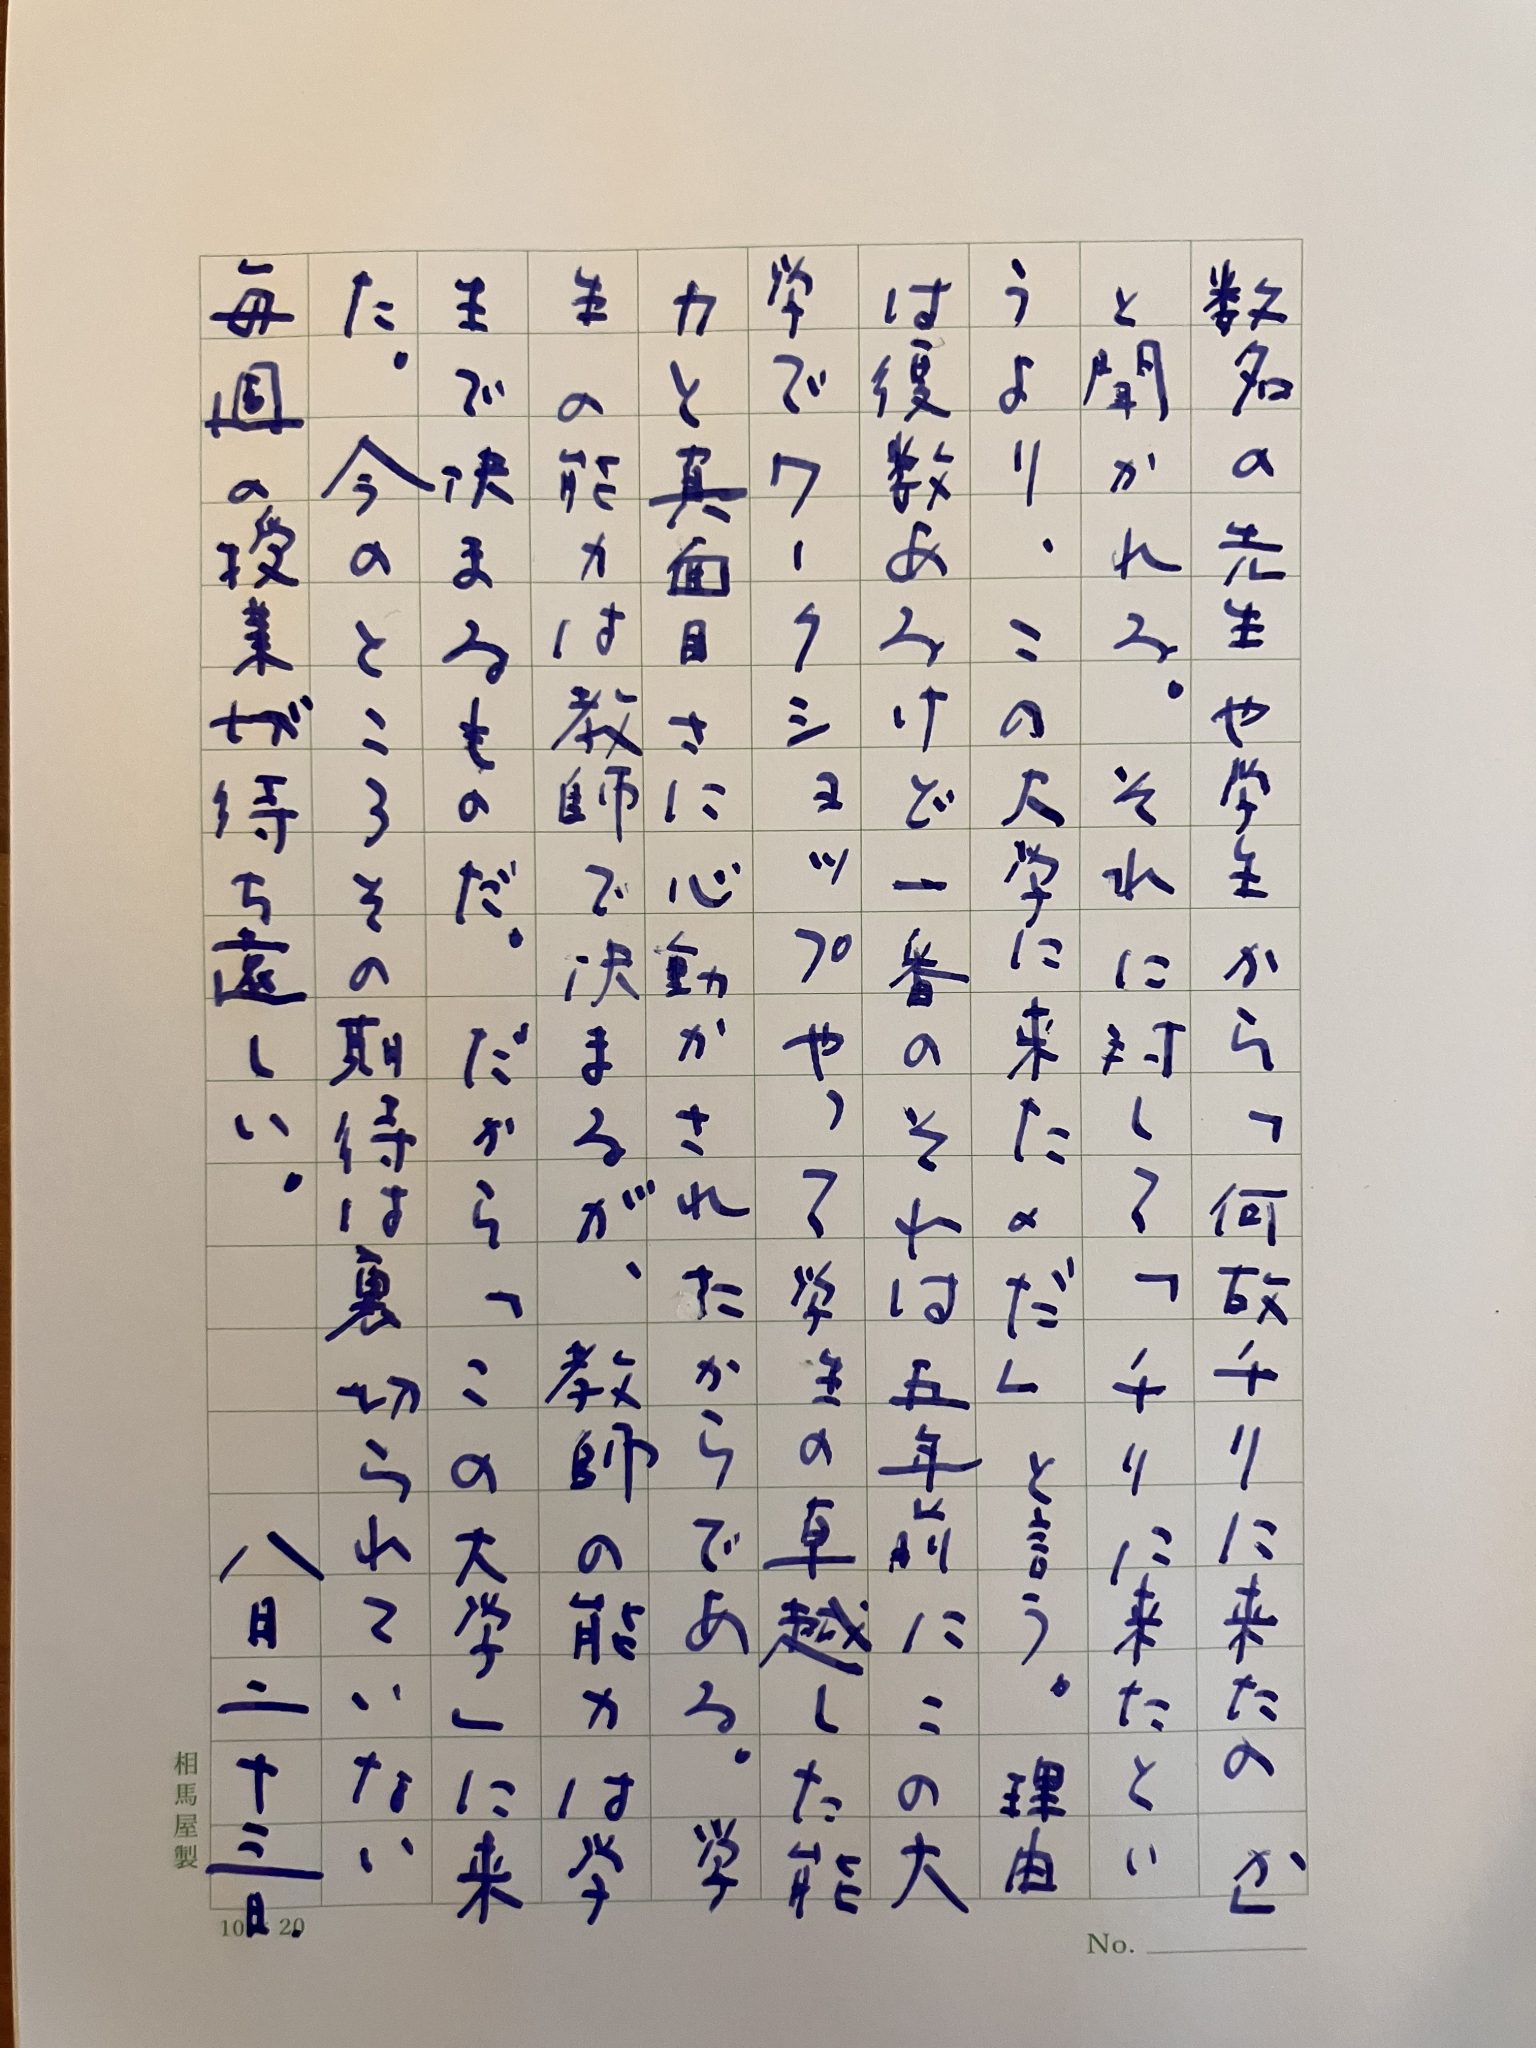 数名の先生や学生から「何故チリに来たのか」
と聞かれる。それに対して「チリに来たとい
うより、この大学に来たのだ」と言う。理由
は復数あるけど一番のそれは五年前にこの大
学でワークショップやって学生の卓越した能
力と真面目さに心動かされたからである。学
生の能力は教師で決まるが、教師の能力は学
生で決まるものだ。だから「この大学」に来
た。今のところその期待は裏切られていない
毎週の授業が待ち遠しい。 八月二十三日.
相馬屋製
10 20
No.